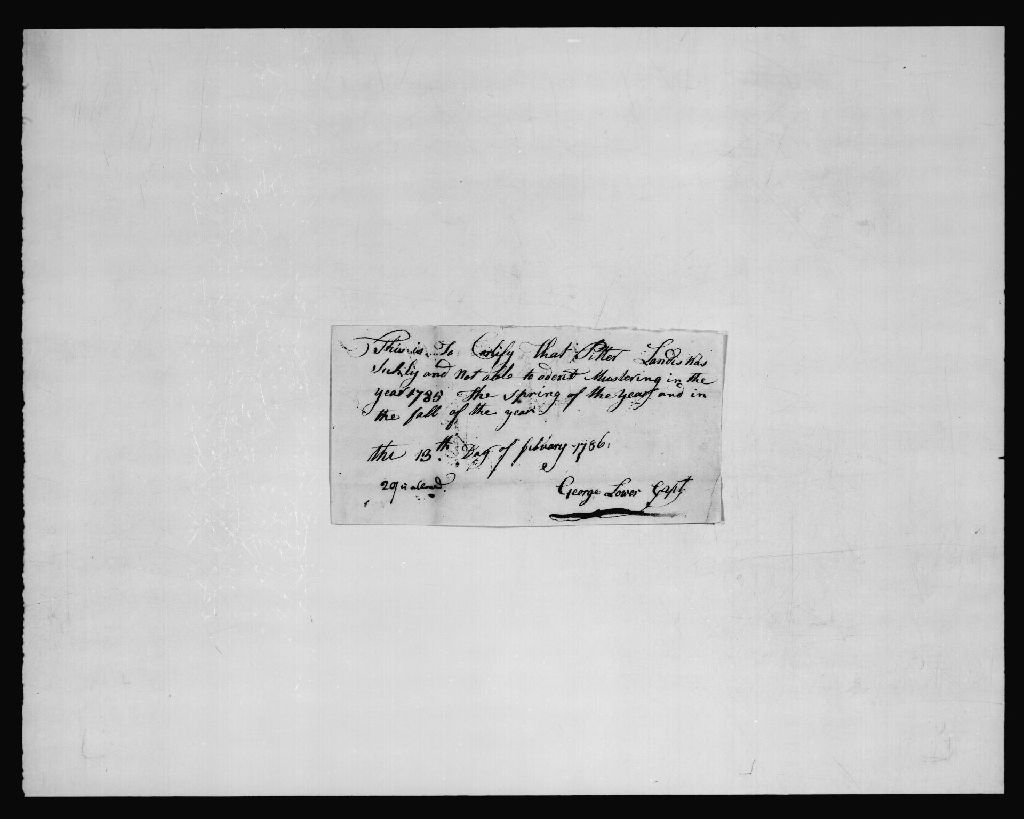 This is To Certify that Pitter Landis Was
Sickly and Not able to adent Mustering in the
year 1785 the Spring of the year and in
the fall of the year
the 13th Day of febuary 1786.
George Lower Capt